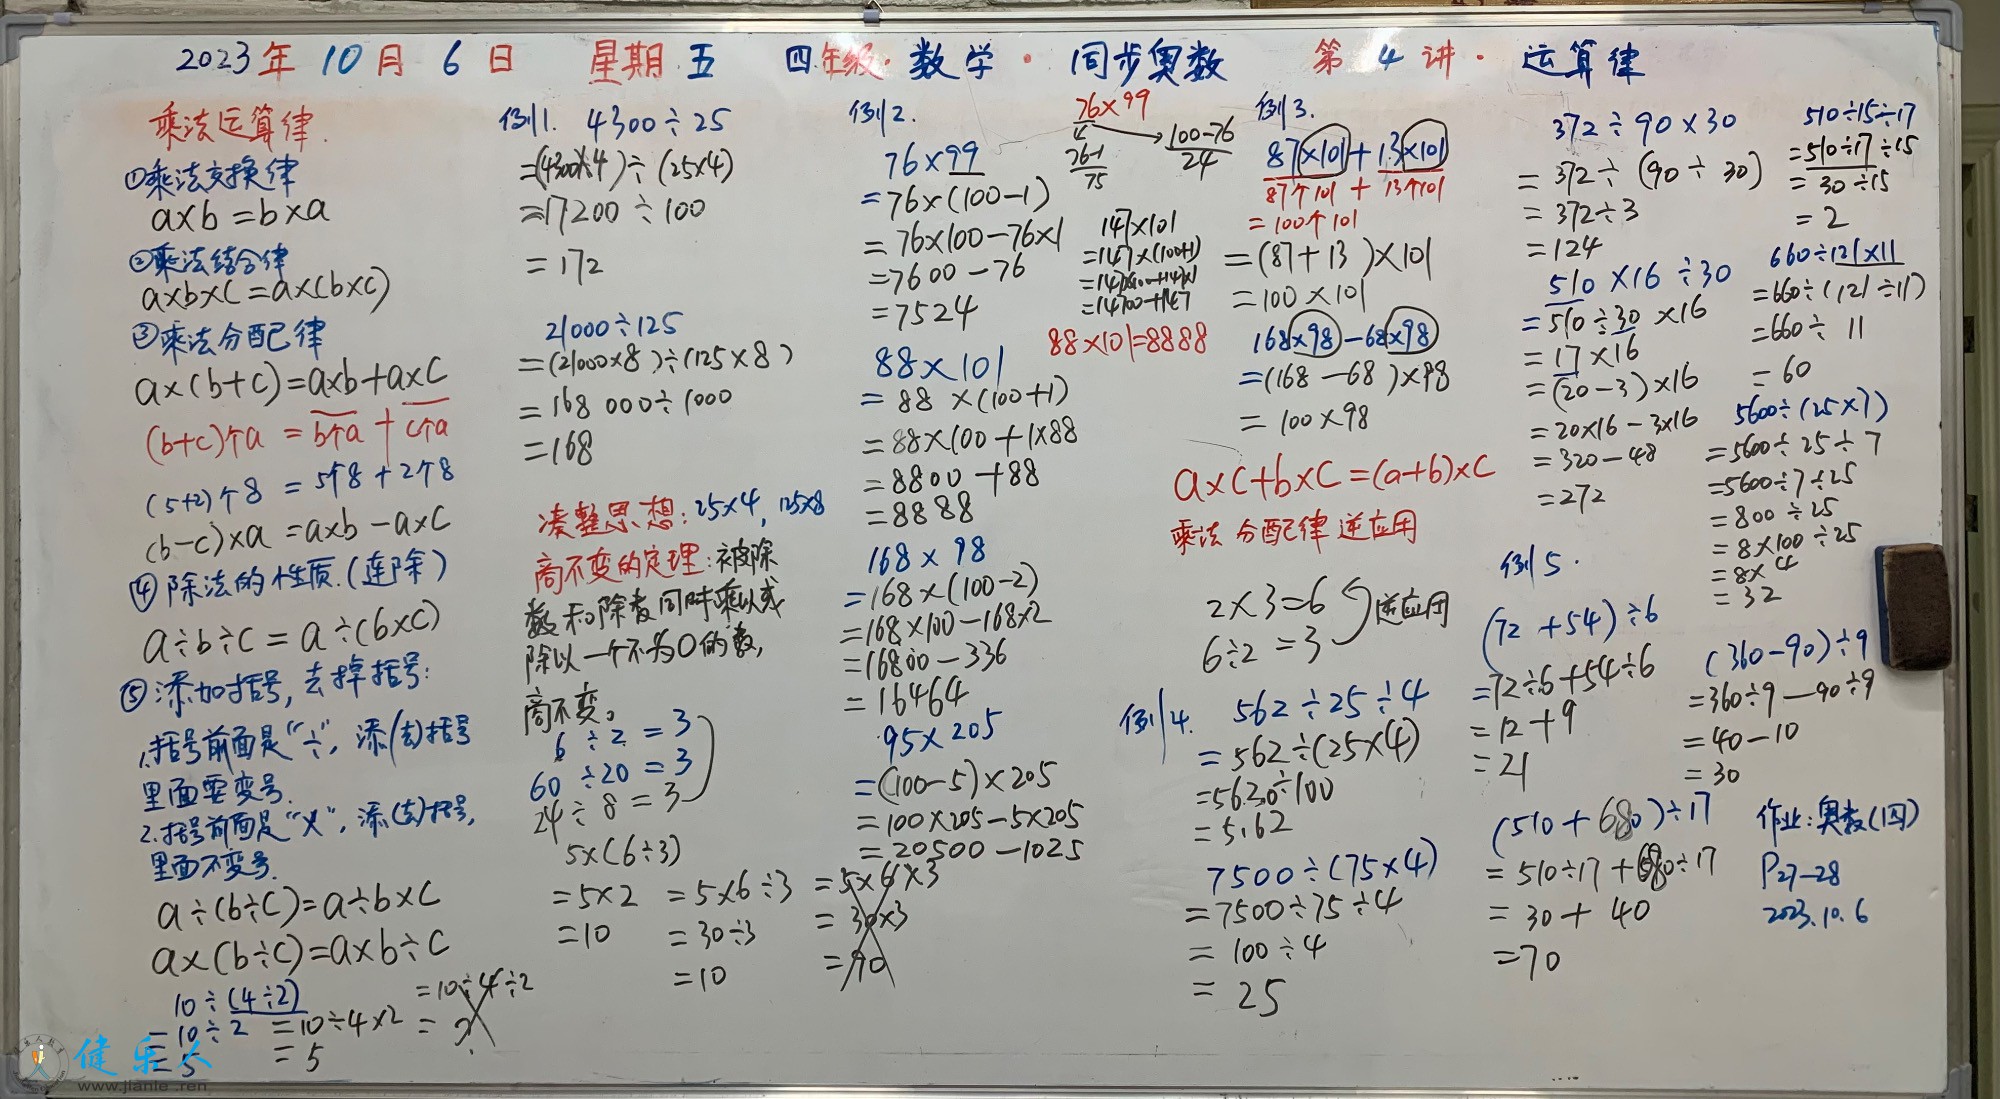 2023年10月6日 星期五 四年级·数学·同步奥数 第4讲·运算律
乘法运算律
①乘法交换律
a×b=b×a
②乘法结合律
a×b×c=a×(b×c)
③乘法分配律
a×(b+c)=a×b+a×c
(b+c)个a=b个a+c个a
(5+2)个8=5个8+2个8
(b-c)×a=a×b-a×c
④除法的性质.(连除)
a÷b÷c=a÷(b×c)
⑤添加括号,去掉括号:
1.括号前面是"÷",添(去)括号
里面要变号.
2.括号前面是"×",添(去)括号,
里面不变号.
a÷(b÷c)=a÷b×c
a×(b÷c)=a×b÷c
10÷(4÷2)
=10÷2 =10÷4×2 =10÷4÷2
=5 =5 =?
例1. 4300÷25
=(4300×4)÷(25×4)
=17200÷100
=172
21000÷125
=(21000×8)÷(125×8)
=168000÷1000
=168
凑整思想:25×4,125×8
商不变的定理:被除
数和除数同时乘以或
除以一个不为0的数,
商不变。
6÷2=3
60÷20=3
24÷8=3
5×(6÷3)
=5×2 =5×6÷3 =5×6×3
=10 =30÷3 =30×3
=10 =90
例2.
76×99
=76×(100-1)
=76×100-76×1
=7600-76
=7524
88×101
=88×(100+1)
=88×100+1×88
=8800+88
=8888
168×98
=168×(100-2)
=168×100-168×2
=16800-336
=16464
95×205
=(100-5)×205
=100×205-5×205
=20500-1025
76×99
76-1
75
100-76
24
147×101
=147×(100+1)
=147×100+147×1
=14700+147
88×101=8888
例3.
87×101+13×101
87个101+13个101
=100个101
=(87+13)×101
=100×101
168×98-68×98
=(168-68)×98
=100×98
a×c+b×c=(a+b)×c
乘法分配律逆应用
2×3=6
6÷2=3
逆应用
例4. 562÷25÷4
=562÷(25×4)
=562÷100
=5.62
7500÷(75×4)
=7500÷75÷4
=100÷4
=25
372÷90×30
=372÷(90÷30)
=372÷3
=124
510×16÷30
=510÷30×16
=17×16
=(20-3)×16
=20×16-3×16
=320-48
=272
例5.
(72+54)÷6
=72÷6+54÷6
=12+9
=21
(510+680)÷17
=510÷17+680÷17
=30+40
=70
510÷15÷17
=510÷17÷15
=30÷15
=2
660÷121×11
=660÷(121÷11)
=660÷11
=60
5600÷(25×7)
=5600÷25÷7
=5600÷7÷25
=800÷25
=8×100÷25
=8×4
=32
(360-90)÷9
=360÷9-90÷9
=40-10
=30
作业:奥数(四)
P27-28
2023.10.6
健乐人
www.jianle.ren